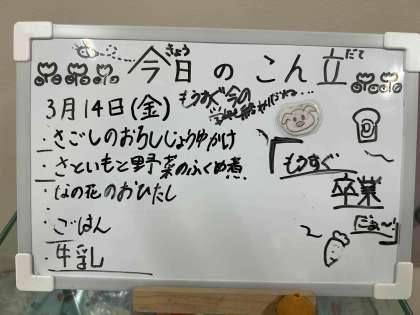 今日のこん立
きょう
だて
3月14日(金)
もうすぐ今の
さごしのおろしじょうゆがけ
さといもと野菜のふくめ煮
なの花のおひたし
ごはん
牛乳
「もうすぐ
卒業
だぁ〜」